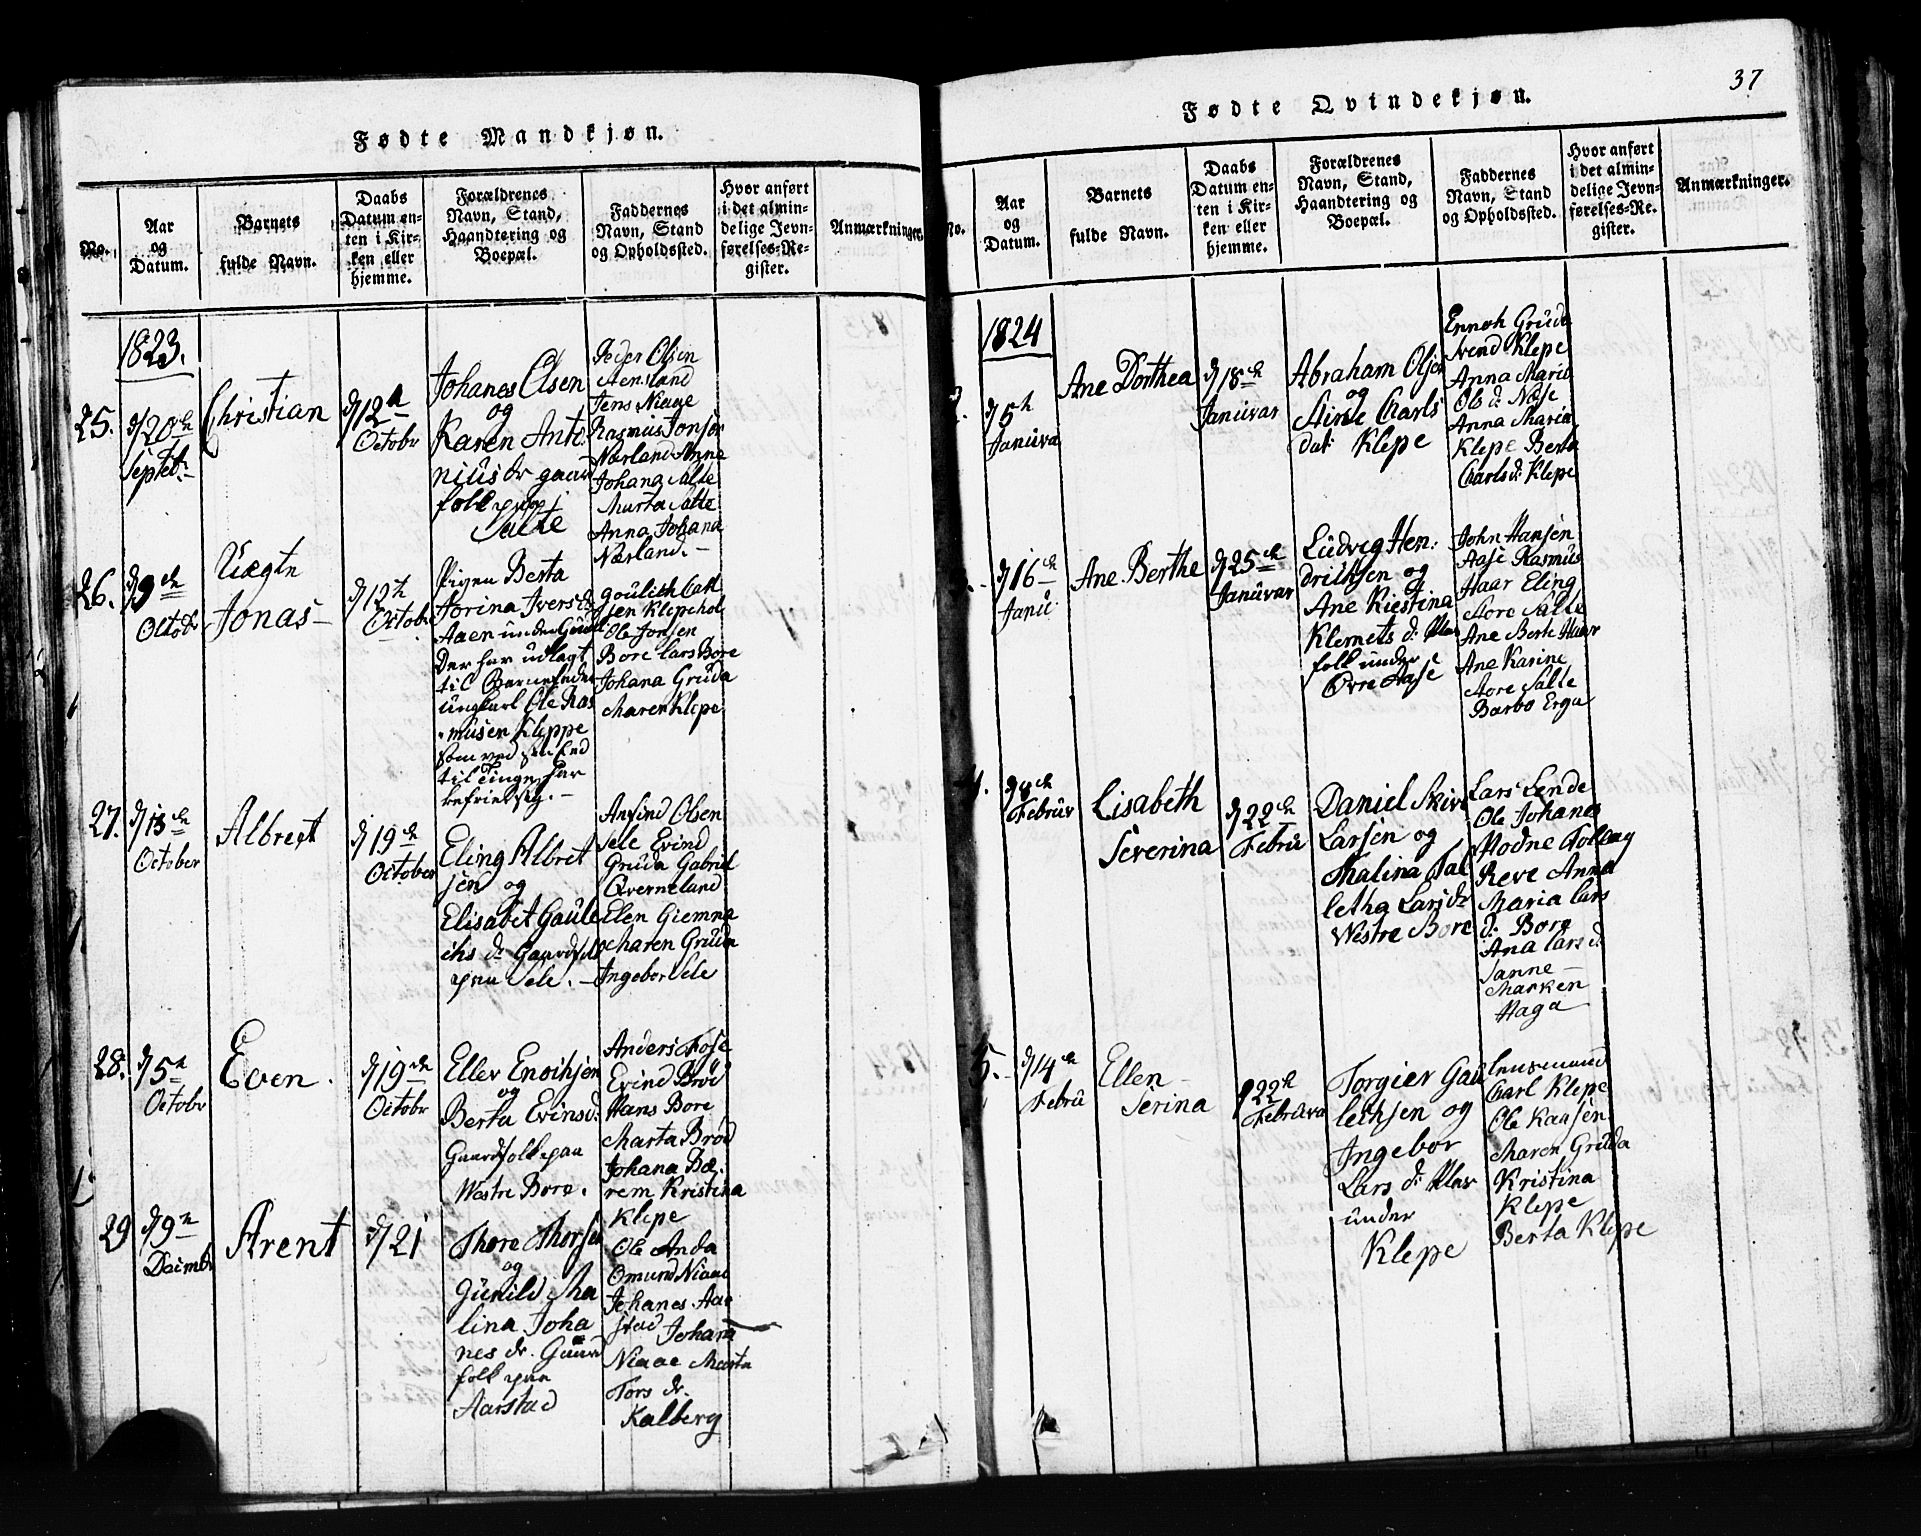 Fødte Mandkjøn.
No.
Aar
og
Datum.
Barnets
fulde Navn.
Daabs
Datum en-
ten i Kir-
ken eller
hjemme.
Forældrenes
Navn, Stand,
Haandtering og
Boepæl.
Faddernes
Navn, Stand
og Opholdssted.
Hvor anført
i det almin-
delige Jevn-
førelses-Re-
gister.
Anmærkninger.
1823.
25.
d/20de
Septeb.
Christian
d/12te
Octobr
Johanes Olsen
og
Karen Anto
nius dr gaard
folk paa
Salte
Peder Olsen
Jens Niaae
Rasmus Jonsen
Nærland Anna
Johana Salte
Marta Salte
Anna Johana
Nærland. –
26.
d/9de
Octobr
Uægte
Jonas –
d/12te
Octobr
Pigen Berta
Jorina Ivers d.
Aaen under Gruda
Der har udlagt
til Barnefader
ungkarl Ole Ras
musen Kleppe
som ved sin Eed
til Tinge har
befriet sig. –
Goulich Carl
sen Klepehol
Ole Jonsen
Bore Lars Bore
Johana Gruda
Maren Klepe
27.
d/13de
October
Albreet
d/19de
October
Eling Albret
sen og
Elisabet Gaule
ihs d. Gaardfolk
paa Sele. –
Ansind Olsen
Sele Evind
Gruda Gabriel
Qverneland
Elen Giemna
Maren Gruda
Ingebor Sele
28.
d/5te
Octobr
Even.
d/19de
Octobr
Eller Enochsen
og
Berta Evinsd.
Gaardfolk paa
Westre Bore.
Anders Fose
Evind Brød
Hans Bore
Marta Brød
Johana Bæ.
rem Kristina
Klepe
29
d/9de
Decmbr
Arent
d/21
Thore Thorsen
og
Gunild Ma
lina Joha
nes dr. Gaard
folk paa
Aarstad
Ole Anda
Omund Niaae
Johanes Aar
stad Johana
Niaae Marta
Tors dr.
Kalberg
37
Fødte Qvindekjøn.
No.
Aar
og
Datum.
Barnets
fulde Navn.
Daabs
Datum en-
ten i Kir-
ken eller
hjemme.
Forældrenes
Navn, Stand,
Haandtering og
Boepæl.
Faddernes
Navn, Stand
og Opholdssted.
Hvor anført
i det almin-
delige Jevn-
førelses-Re-
gister.
Anmærkninger.
1824
2.
d/5te
Januva
Ane Dorthea
d/18de
Januvar
Abraham Olsen
og
Sirile Carls
dat. Klepe
Ennok Gruda
Svend Klepe
Anna Maria
Ols d. Næse
Anna Maria
Klepe Berta
Carls d. Klepe
d/16de
Janu
Ane Berthe
d/25de
Januvar
Ludvig Hen.
drichsen og
Ane Kiestina
Klemets d. Plas
folk under
Øvre Aase
John Hansen
Aase Rasmus
Haar Eling
Store Salte
Ane Berte Haar
Ane Karine
Store Salte
Barbo Erga
4.
d/8de
Februv
Lisabeth
Severina
d/22de
Febru
Daniel Skive
Larsen og
Thalina Tal
letha Larsd.
Westre Bore
Lars Lende
Ole Johanes
Hodne Tolleag
Reve Anna
Maria Lars
d. Bore
Ana Lars d.
Sanne –
Marken
Haga
5.
d/14de
Febru
Ellen
Serina
d/22de
Februva
Torgier Gau
lechsen og
Ingebor
Lars d. Plas
under
Klepe
lensmand
Carl Klepe
Ole Kaasen
Maren Gruda
Kristina
Klepe
Berta Klepe